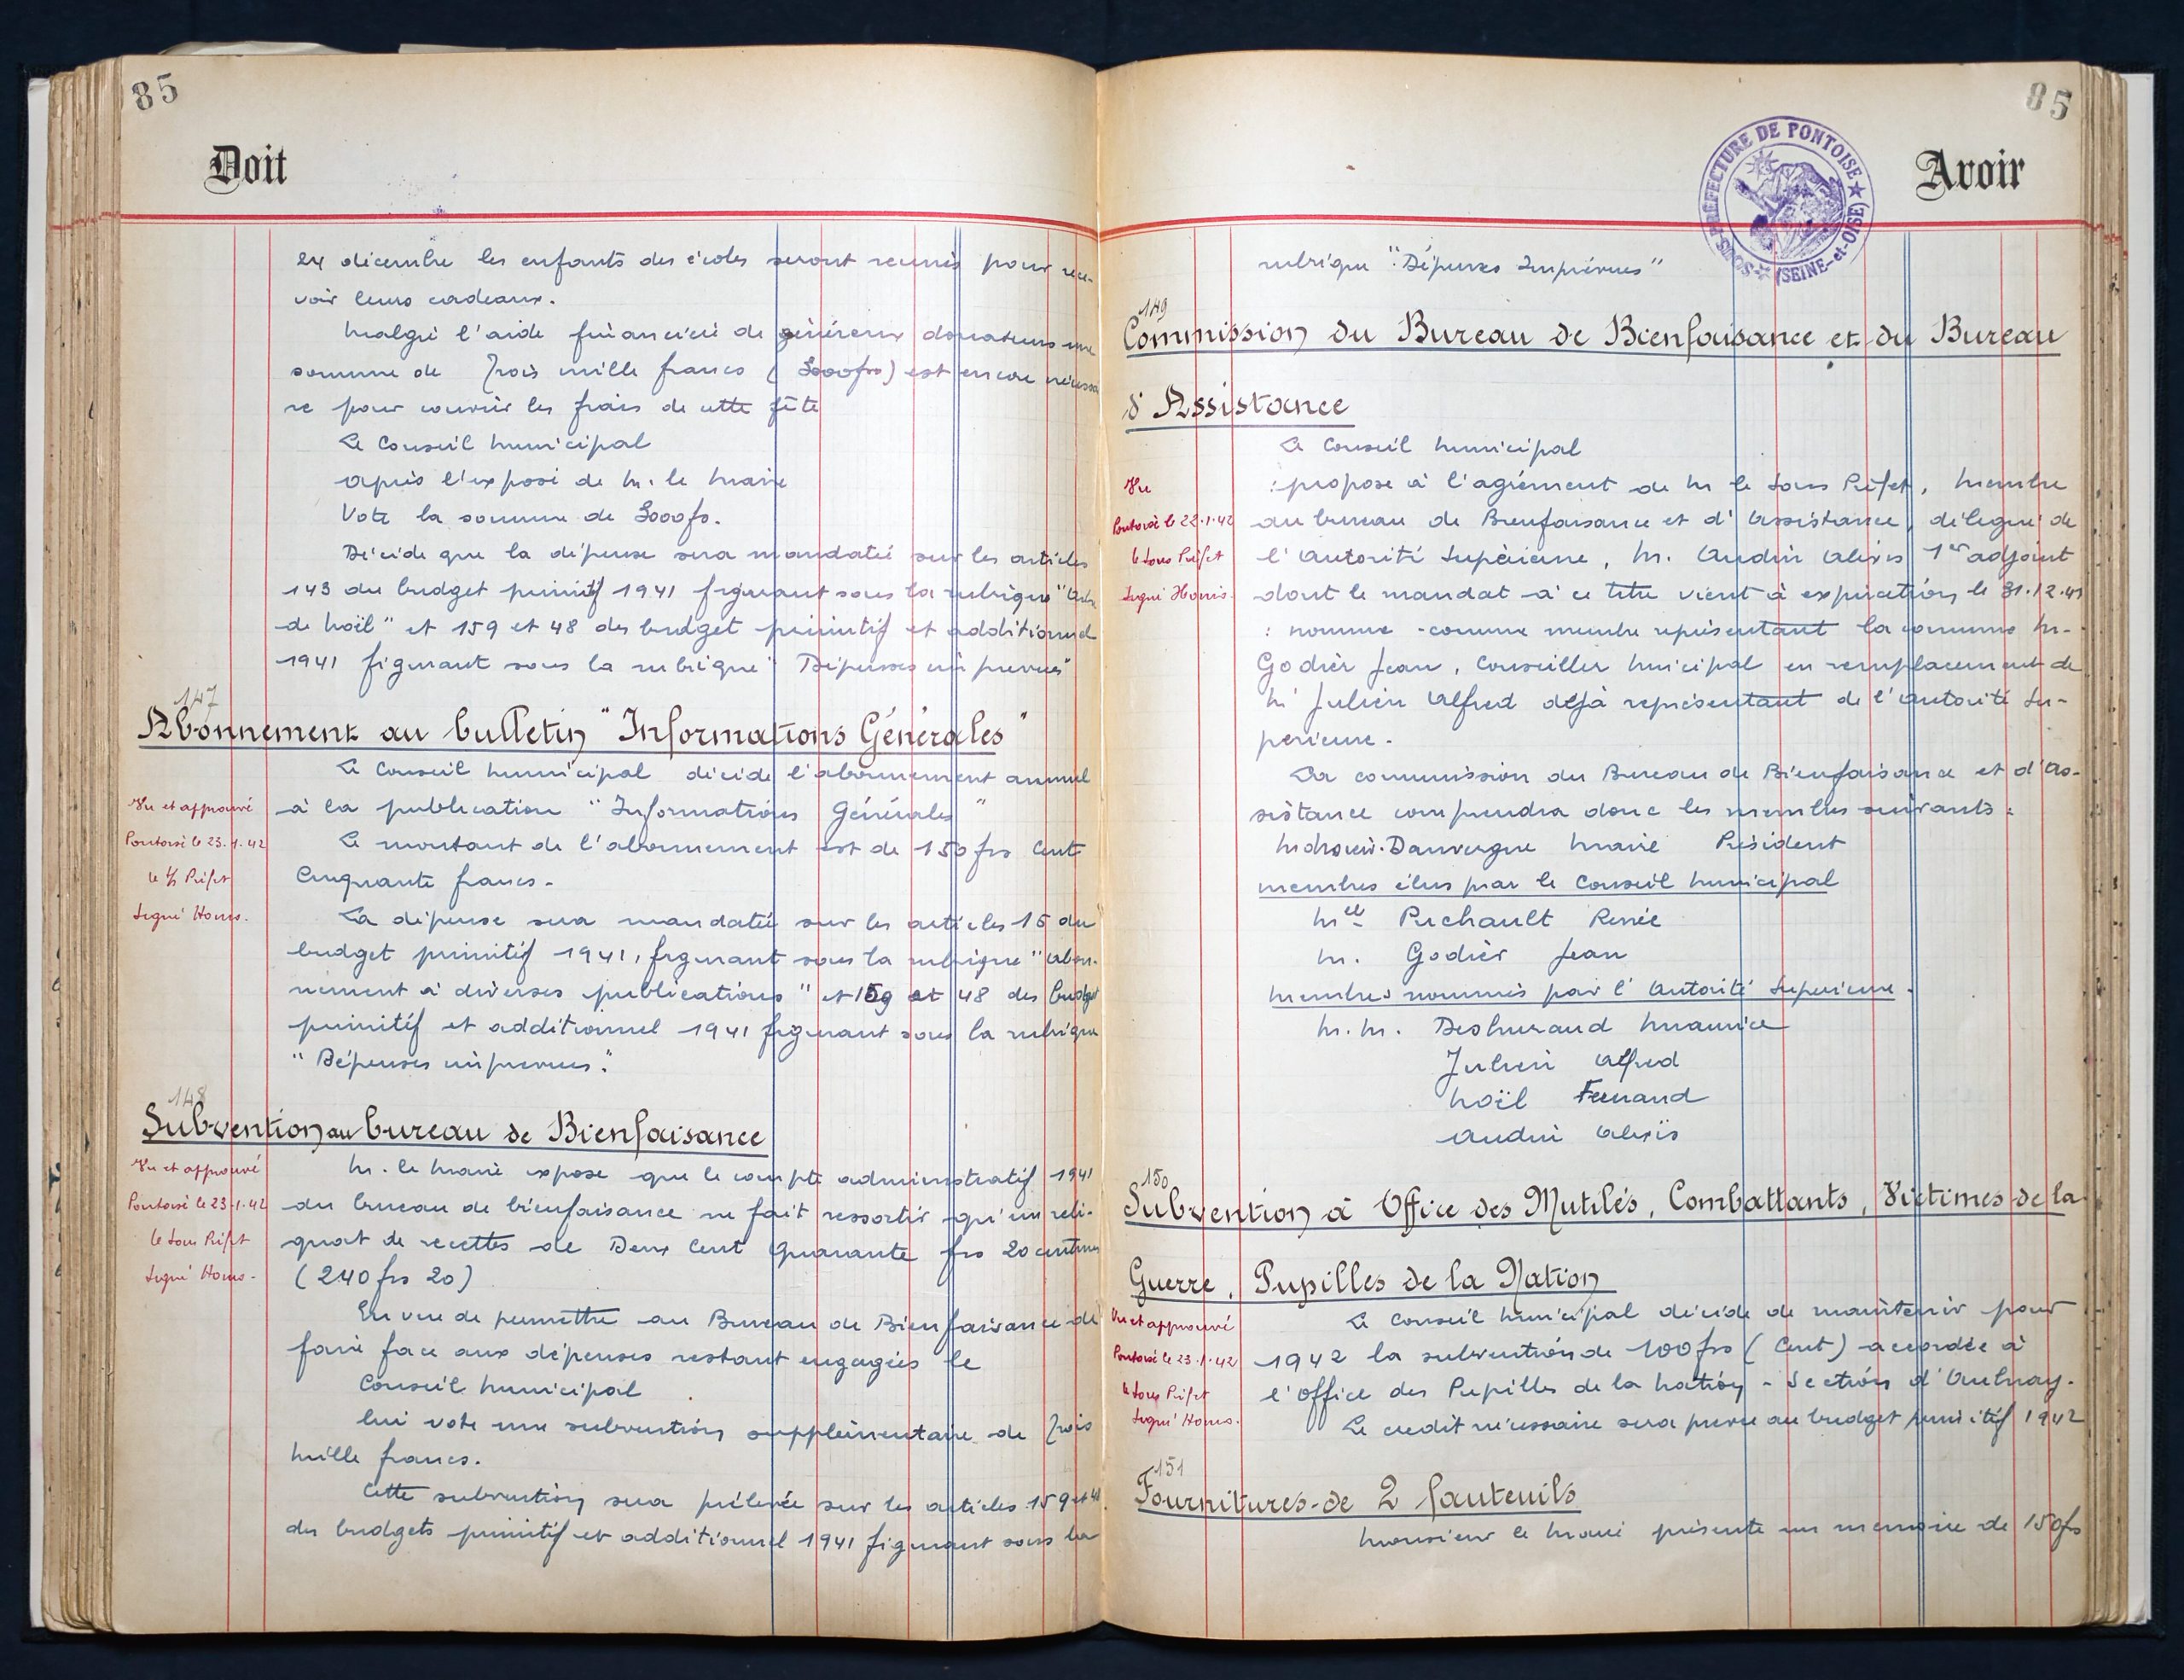 85
Doit
24 décembre les enfants des écoles seront réunis pour rece-
voir leurs cadeaux.
Malgré l'aide financière de généreux donateurs une
somme de Trois mille francs (3000frs) est encore nécessai
re pour couvrir les frais de cette fête
Le Conseil Municipal
après l'exposé de M. le Maire
Vote la somme de 3000fs.
Décide que la dépense sera mandatée sur les articles
143 du budget primitif 1941 figurant sous la rubrique "Arbre
de Noël" et 159 et 48 des budget primitif et additionnel
1941 figurant sous la rubrique "Dépenses imprévues"
147
Abonnement au bulletin "Informations Générales"
Le Conseil Municipal décide l'abonnement annuel
à la publication "Informations Générales"
Le montant de l'abonnement est de 150 frs Cent
Cinquante francs.
La dépense sera mandatée sur les articles 15 du
budget primitif 1941, figurant sous la rubrique "Abon-
nement à diverses publications" et 159 et 48 des budget
primitif et additionnel 1941 figurant sous la rubrique
"Dépenses imprévues".
Vu et approuvé
Pontoise le 23.1.42
le S/ Préfet
Signé Homo.
148
Subvention au bureau de Bienfaisance
M. le Maire expose que le compte administratif 1941
du bureau de bienfaisance ne fait ressortir qu'un reli-
quat de recettes de Deux Cent Quarante frs 20 centimes
(240 frs 20)
En vue de permettre au Bureau de Bienfaisance de
faire face aux dépenses restant engagées le
Conseil Municipal
lui vote une subvention supplémentaire de Trois
Mille francs.
Cette subvention sera prélevée sur les articles 159 et 48
des budgets primitif et additionnel 1941 figurant sous la
Vu et approuvé
Pontoise le 23.1.42
le Sous Préfet
Signé Homo.
85
Avoir
SOUS-PRÉFECTURE DE PONTOISE
(SEINE-et-OISE)
rubrique "Dépenses Imprévues"
149
Commission du Bureau de Bienfaisance et du Bureau
d'Assistance
Le Conseil Municipal
: propose à l'agrément de M le Sous Préfet, Membre
du bureau de Bienfaisance et d'Assistance, délégué de
l'Autorité Supérieure, M. Audin Alexis 1er adjoint
dont le mandat à ce titre vient à expiration le 31.12.41
: nomme comme membre représentant la commune M.
Godier Jean, Conseiller Municipal en remplacement de
M Julien Alfred déjà représentant de l'Autorité Su-
périeure.
La commission du Bureau de Bienfaisance et d'As-
sistance comprendra donc les membres suivants :
Dauvergne Maire Président
membres élus par le Conseil Municipal
Melle Pichault Renée
M. Godier Jean
Membres nommés par l'Autorité Supérieure.
M.M. Deshuraud Maurice
Julien Alfred
Noël Fernand
Audin Alexis
Vu
Pontoise le 22.1.42
le Sous Préfet
Signé Homo.
150
Subvention à Office des Mutilés, Combattants, Victimes de la
Guerre, Pupilles de la Nation
Le Conseil Municipal décide de maintenir pour
1942 la subvention de 100 frs (Cent) accordée à
l'Office des Pupilles de la Nation - Section d'Aulnay.
Le crédit nécessaire sera prévu au budget primitif 1942
Vu et approuvé
Pontoise le 23.1.42
le Sous Préfet
Signé Homo.
151
Fournitures de 2 fauteuils
Monsieur le Maire présente un mémoire de 150fs